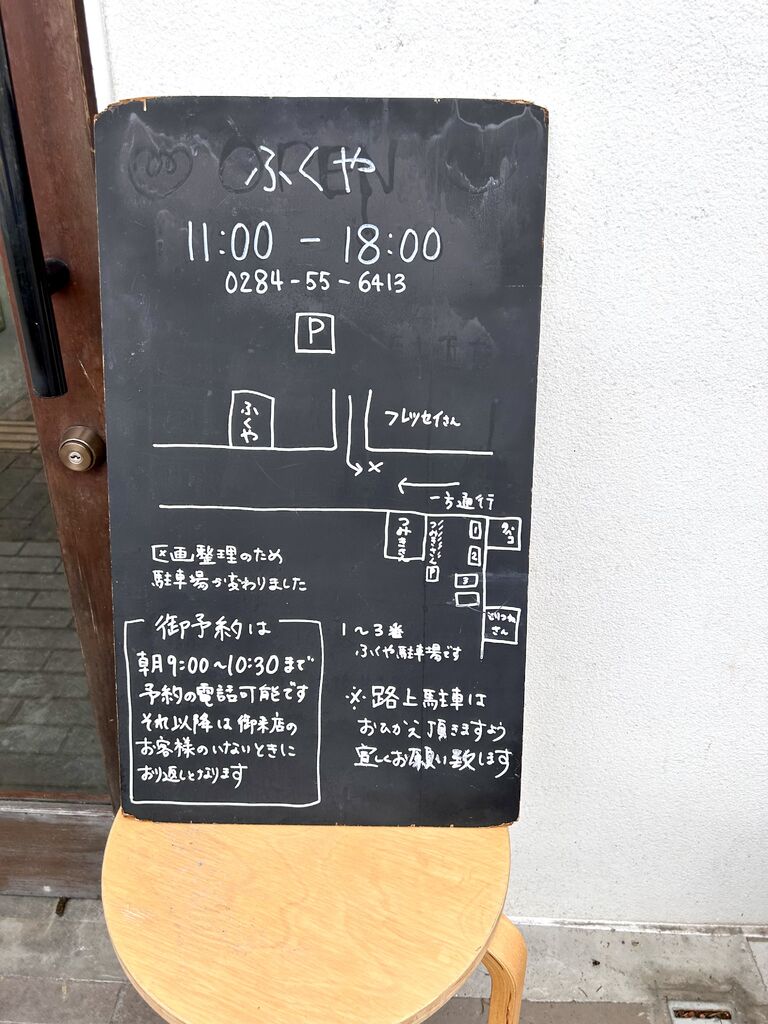 ふくや
OPEN
11:00 - 18:00
0284-55-6413
P
ふくや
フレッセイさん
×
一方通行
つみきさん
つみきさん
P
1
2
3
タバコ
さん
区画整理のため
駐車場が変わりました
1～3番
ふくや駐車場です
御予約は
朝9:00～10:30まで
予約の電話可能です
それ以降は御来店の
お客様のいないときに
おり返しとなります
※路上駐車は
おひかえ頂きますよう
宜しくお願い致します